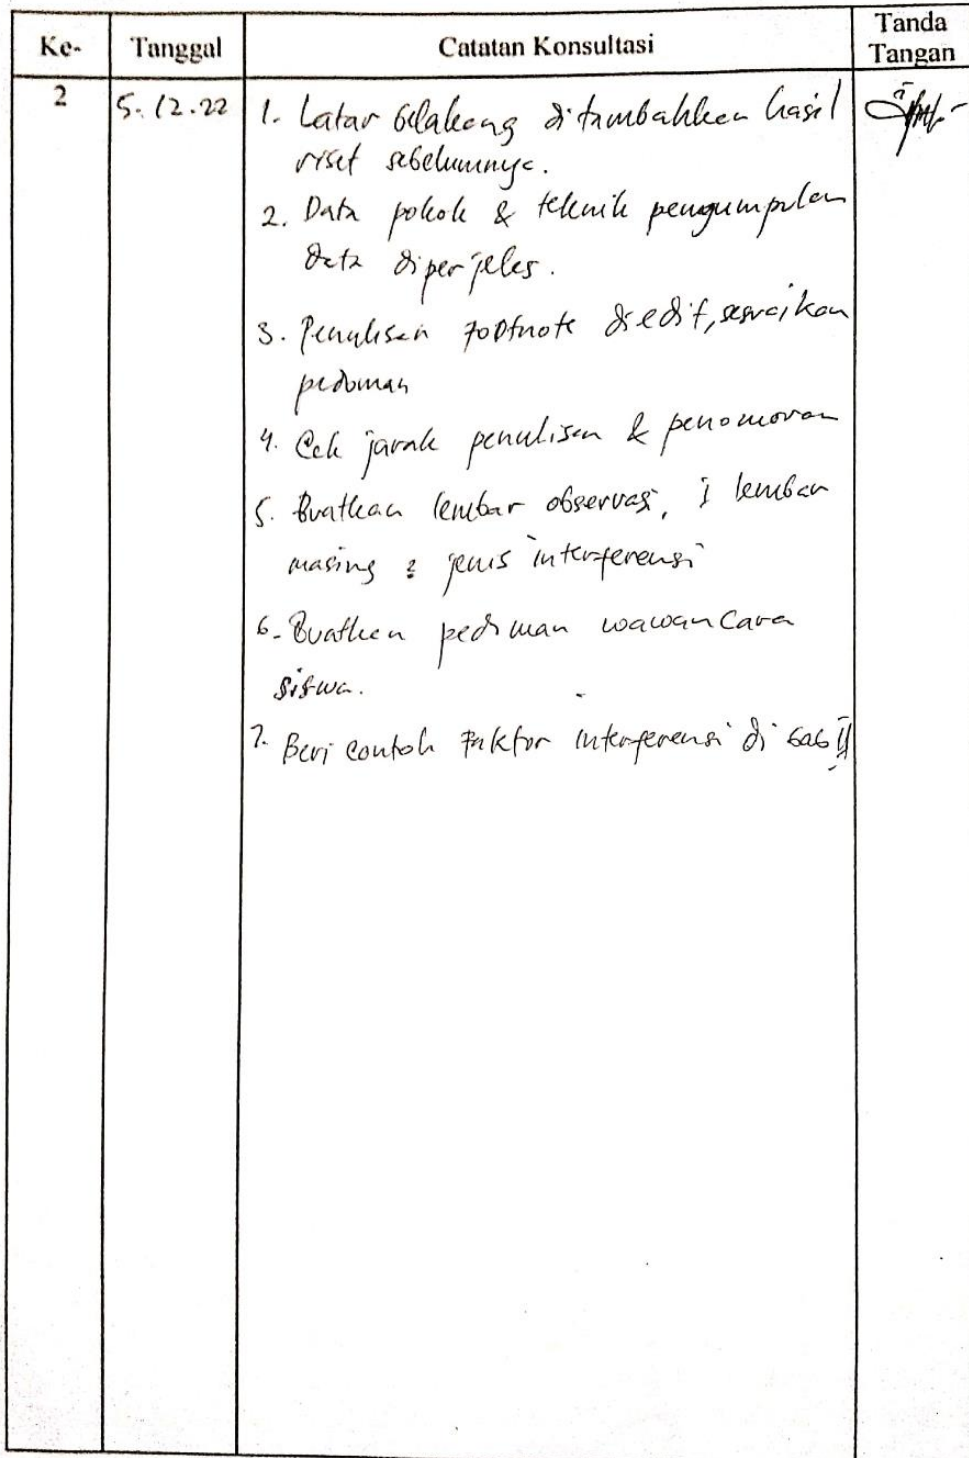 Ke- Tanggal Catatan Konsultasi Tanda
Tangan
2 5.12.22 1. Latar belakang ditambahkan hasil
riset sebelumnya.
2. Data pokok & teknik pengumpulan
data diperjelas.
3. Penulisan footnote diedit, sesuaikan
pedoman
4. Cek jarak penulisan & penomoran
5. Buatkan lembar observasi, 1 lembar
masing2 jenis interferensi
6. Buatkan pedoman wawancara
siswa.
7. Beri contoh faktor interferensi di bab II